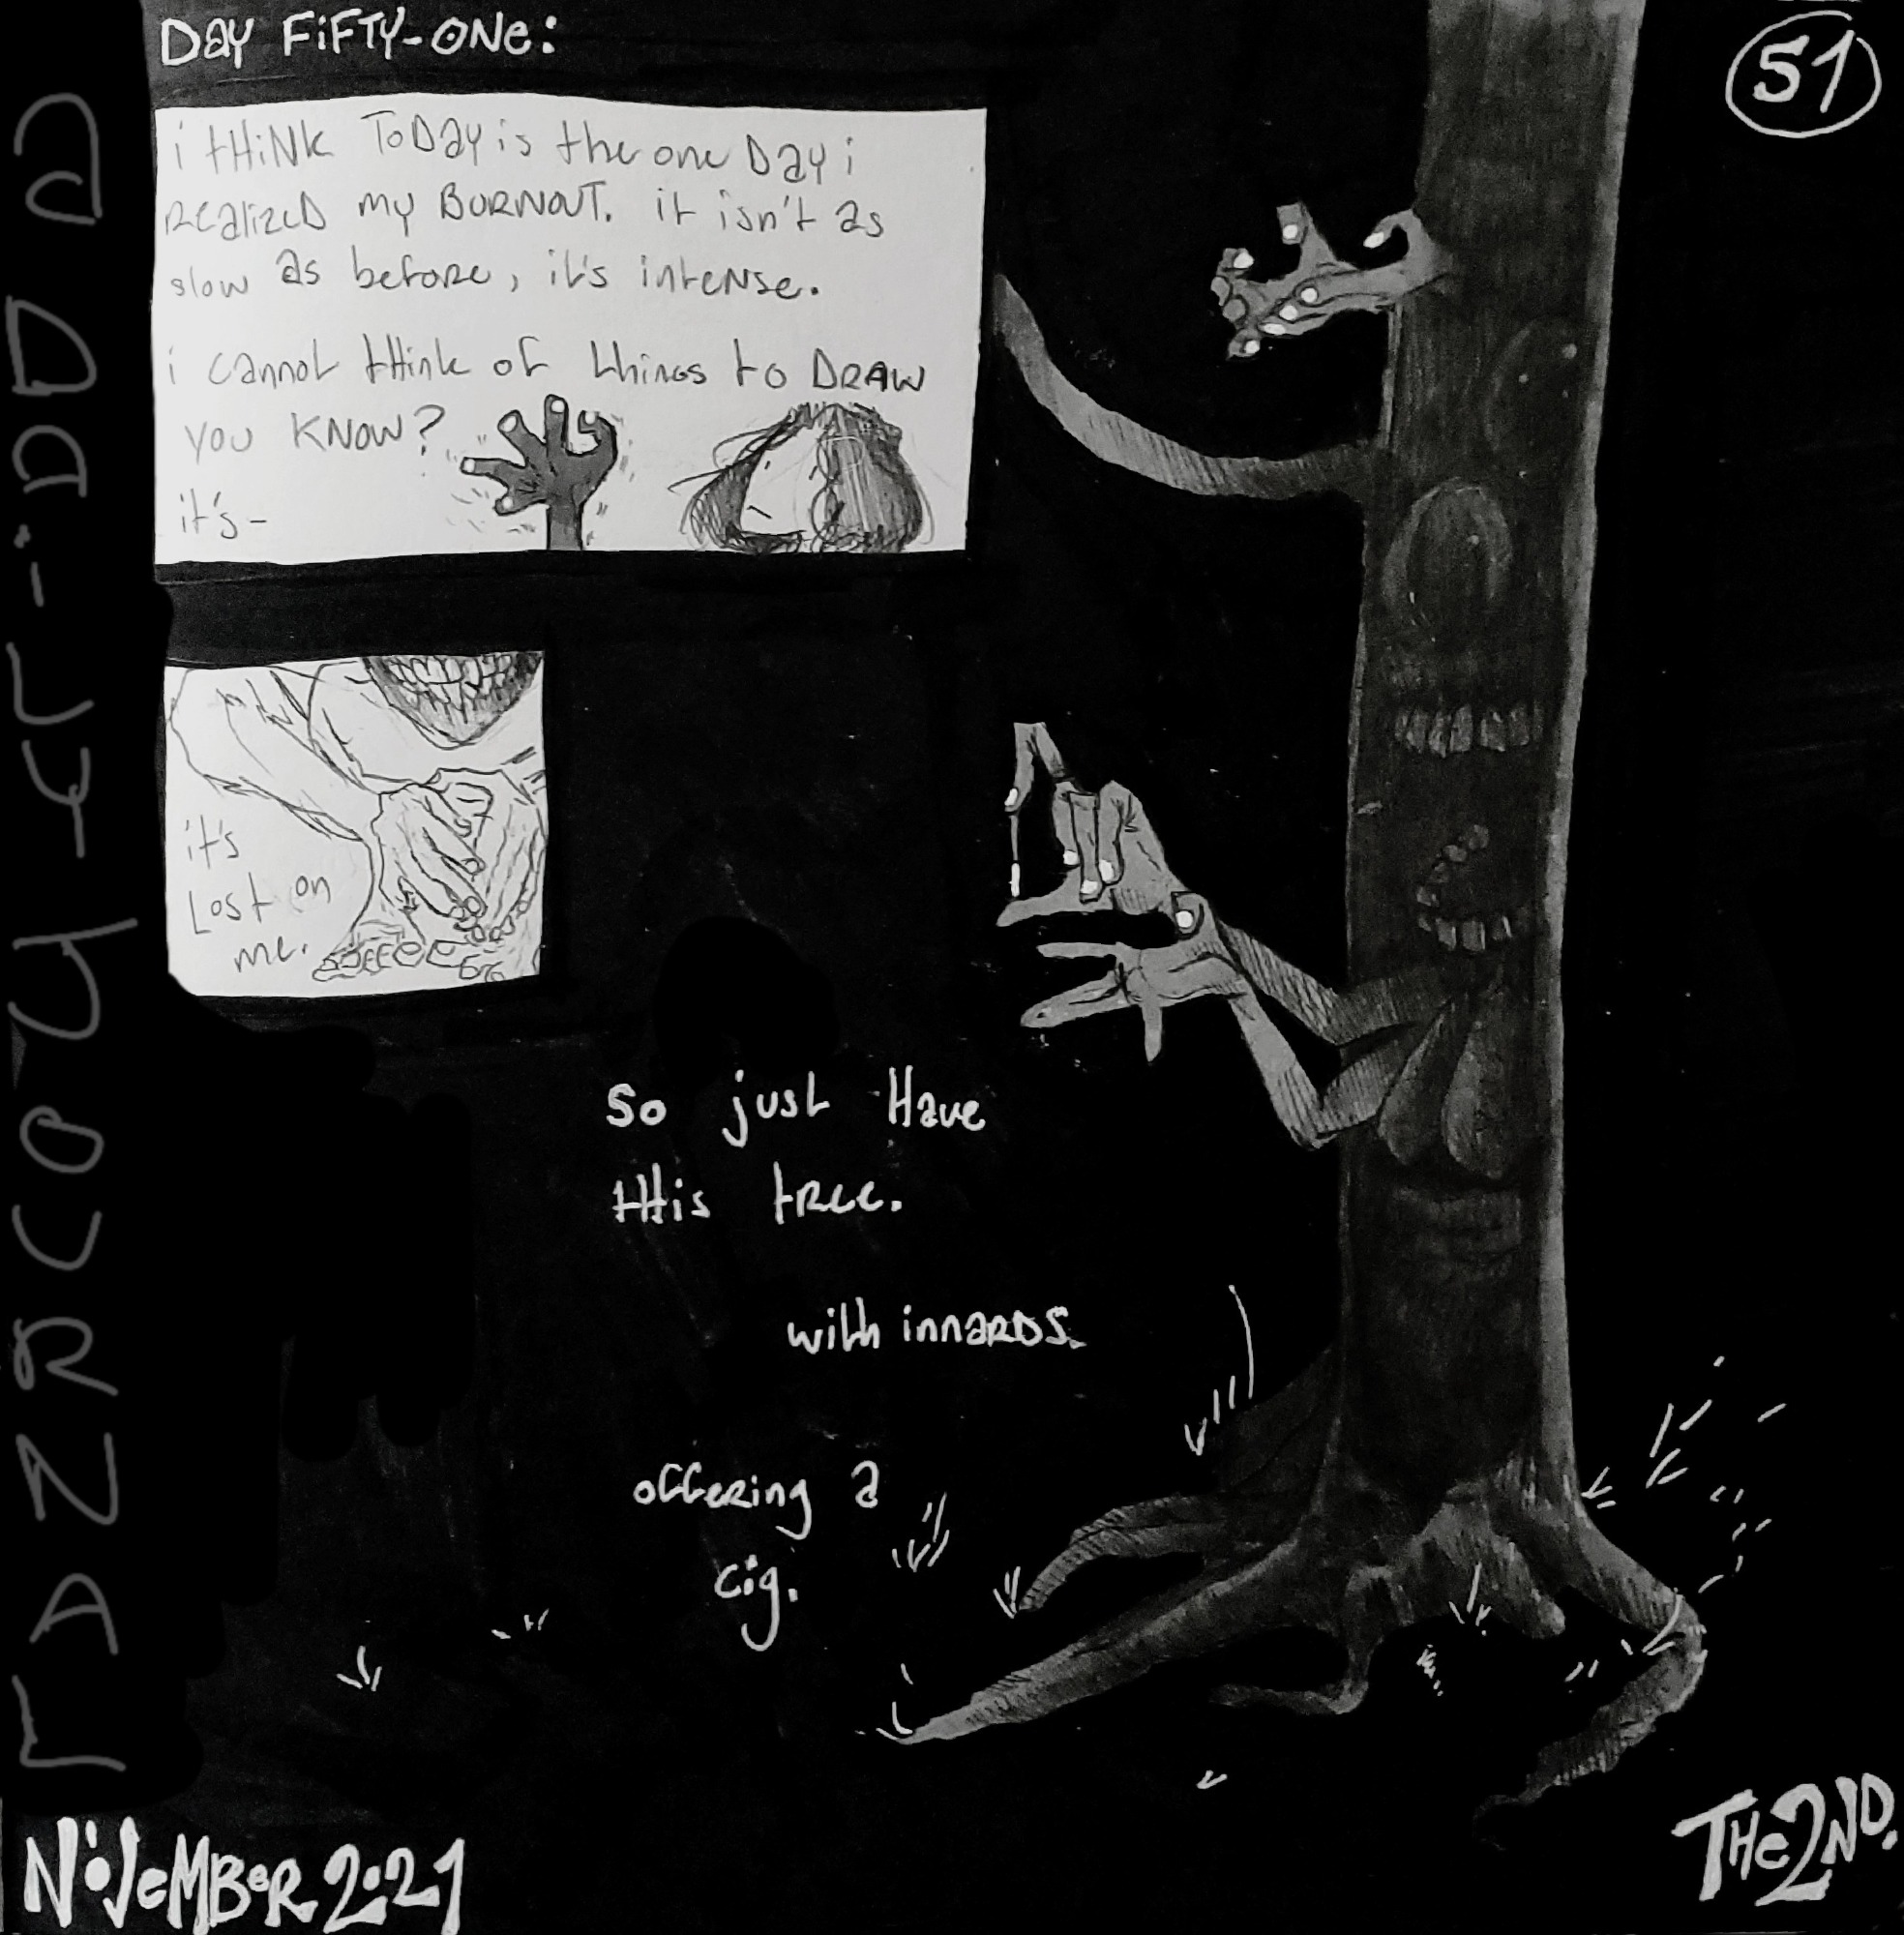 Day FiFTY-ONe:
51
i tHiNK ToDay is the one Day i
Realized my BURNOUT. it isn't as
slow as before, it's intense.
i cannot think of things to DRAW
you KNOW?
it's-
it's
Lost on
me.
So just Have
tHis tree.
with innards.
offering a
cig.
a DaiLY JOURNAL
NOVeMBeR 2021
THe 2ND.